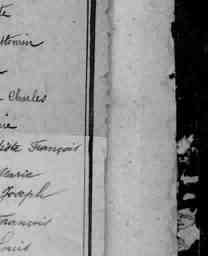 te
Charles
rie
tiste François
Marie
Joseph
François
Louis